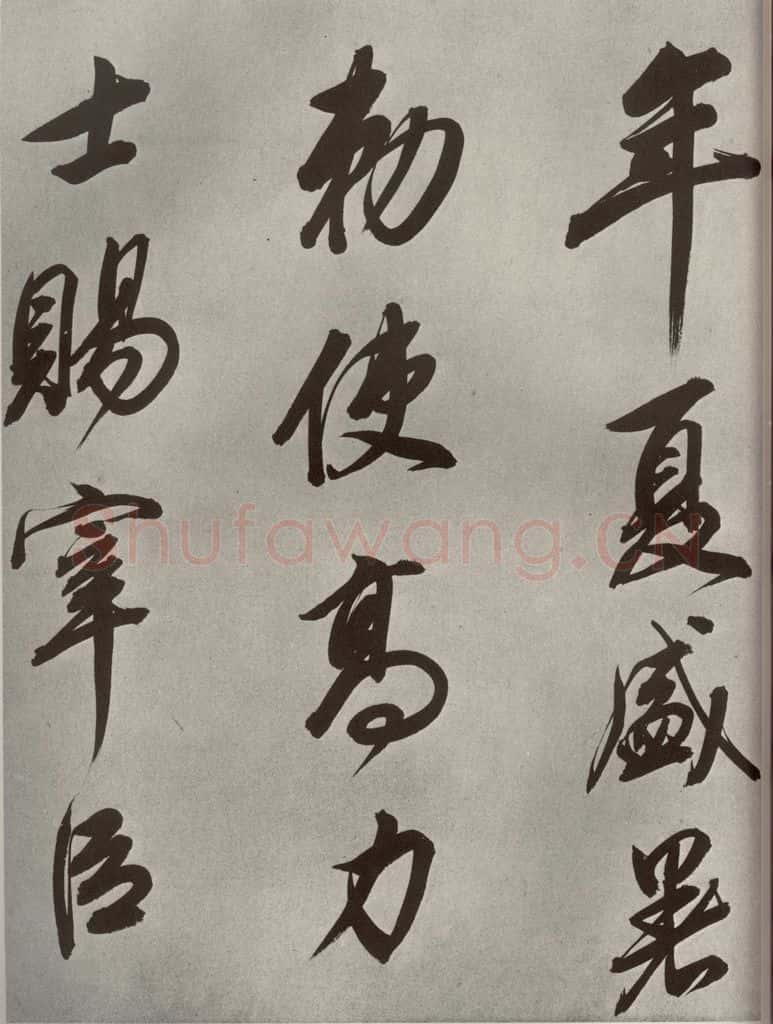 年夏盛暑
勅使高力
士賜宰臣
Shufawang.CN